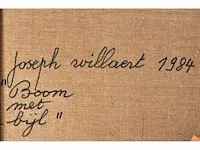 Joseph willaert 1984
"Boom
met
bijl"